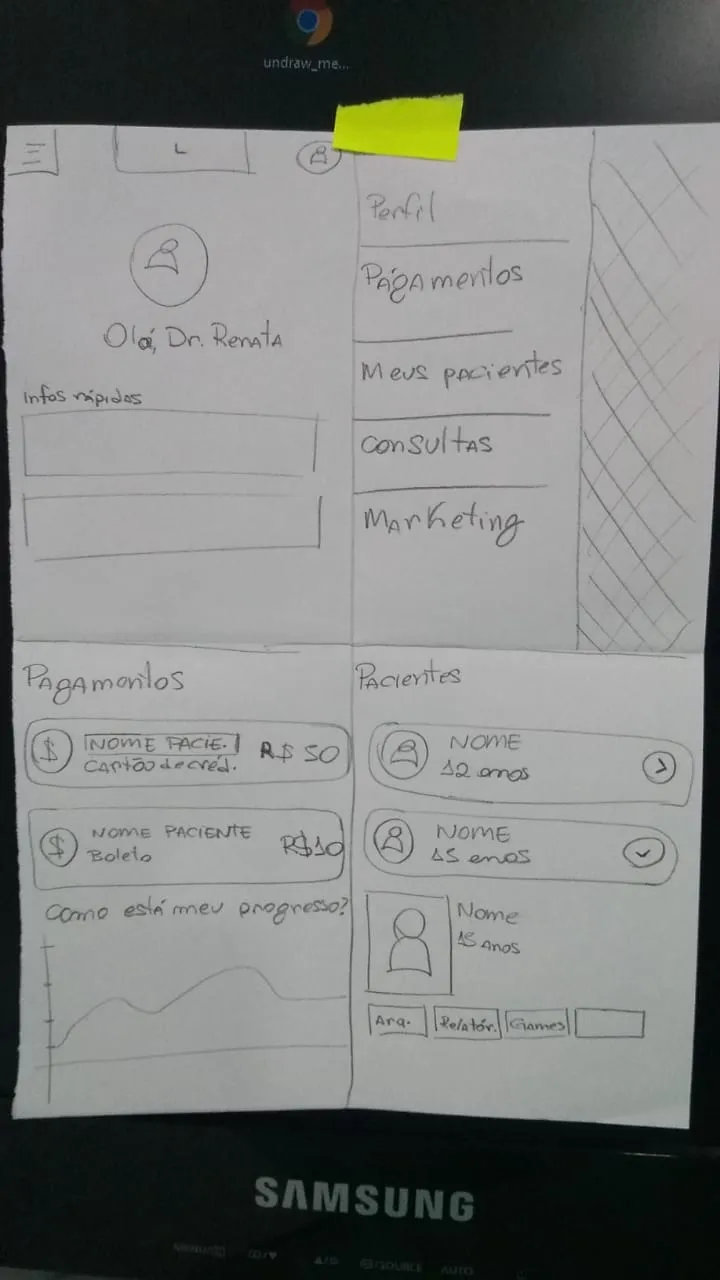 undraw_me...
L
Olá, Dr. Renata
Infos rápidas
Perfil
Pagamentos
Meus pacientes
Consultas
Marketing
Pagamentos
$
NOME PACIE.
Cartão de créd.
R$ 50
$
NOME PACIENTE
Boleto
R$10
Como está meu progresso?
Pacientes
NOME
12 anos
NOME
15 anos
Nome
15 Anos
Arq.
Relatór.
Games
SAMSUNG
SOURCE
AUTO